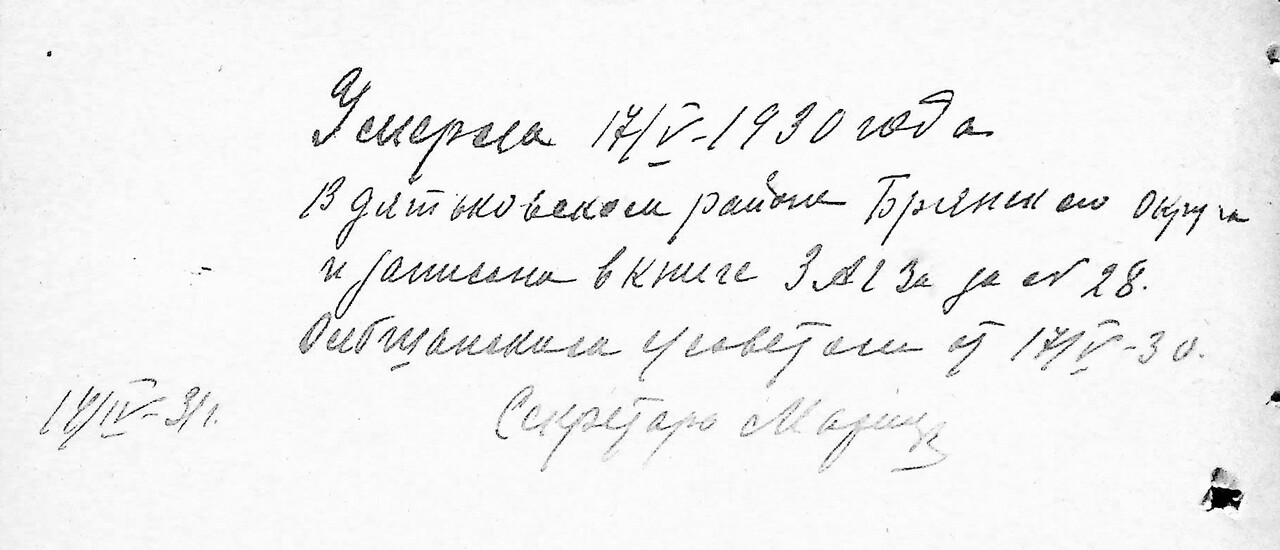 Умерла 17/V-1930 года
В дятьковском районе Брянского округа
и записана в книге ЗАГЗа за № 28.
сельсоветом от 17/V-30.
17/IV-31г. Секретарь